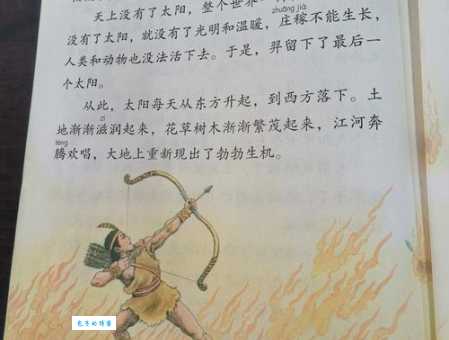 天上没有了太阳，整个世界
zhuāng jià
没有了太阳，就没有了光明和温暖，庄稼不能生长，
人类和动物也没法活下去。于是，羿留下了最后一
个太阳。
从此，太阳每天从东方升起，到西方落下。土
zī
地渐渐滋润起来，花草树木渐渐繁茂起来，江河奔
téng
腾欢唱，大地上重新现出了勃勃生机。